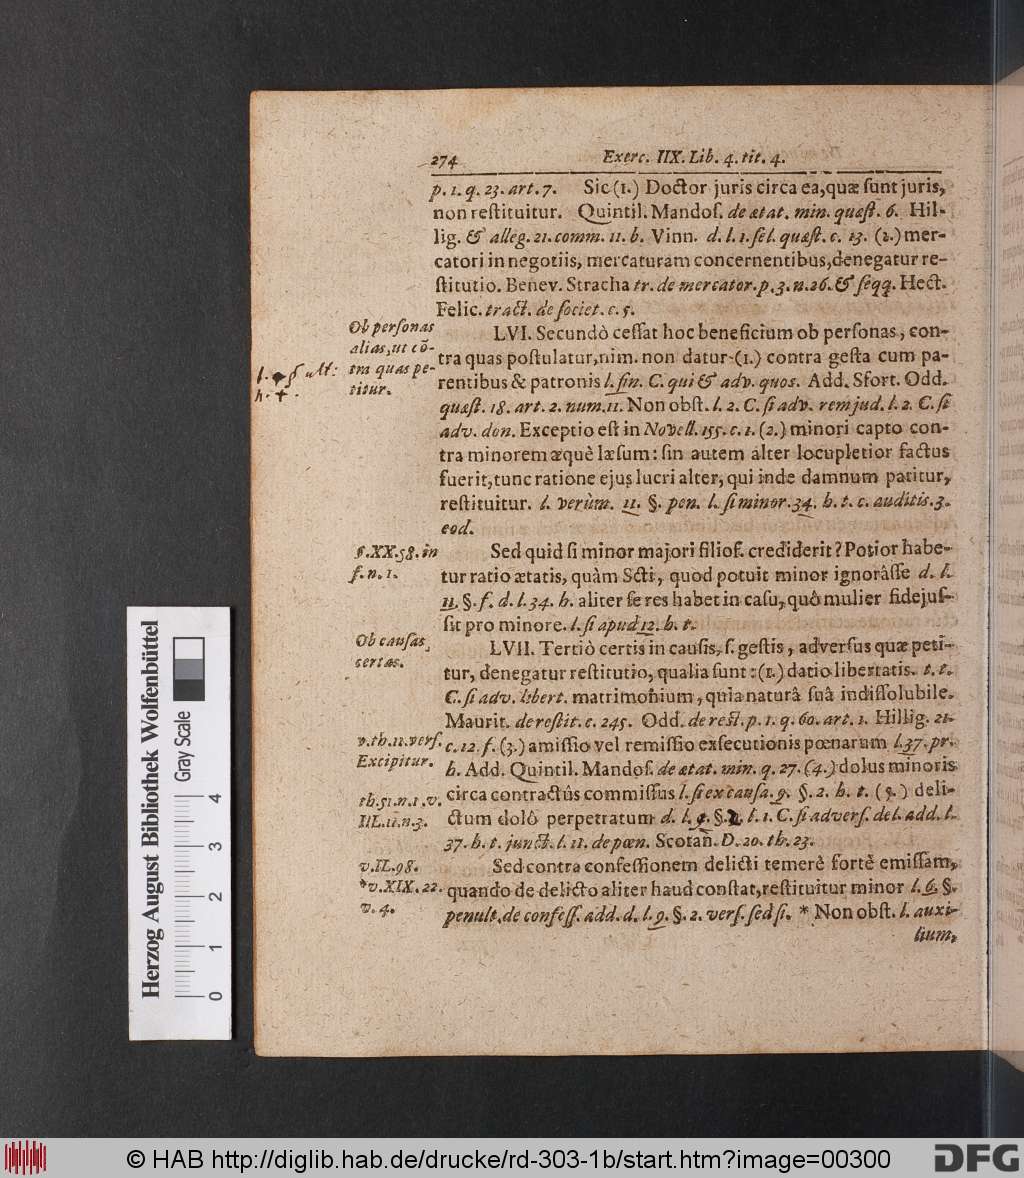 274 Exerc. IIX. Lib. 4. tit. 4.
p. 1. q. 23. art. 7. Sic (1.) Doctor juris circa ea, quæ ſunt juris,
non reſtituitur. Quintil. Mandoſ. de ætat. min. quæſt. 6. Hil-
lig. & alleg. 21. comm. 11. b. Vinn. d. l. 1. ſel. quæſt. c. 13. (2.) mer-
catori in negotiis, mercaturam concernentibus, denegatur re-
ſtitutio. Benev. Stracha tr. de mercator. p. 3. n. 26. & ſeqq. Hect.
Felic. tract. de ſociet. c. 5.
Ob perſonas
alias, ut cõ-
tra quas pe-
titur.
LVI. Secundò ceſſat hoc beneficium ob perſonas, con-
tra quas poſtulatur, nim. non datur (1.) contra geſta cum pa-
rentibus & patronis l. fin. C. qui & adv. quos. Add. Sfort. Odd.
quæſt. 18. art. 2. num. 11. Non obſt. l. 2. C. ſi adv. rem jud. l. 2. C. ſi
adv. don. Exceptio eſt in Novell. 155. c. 1. (2.) minori capto con-
tra minorem æquè læſum: ſin autem alter locupletior factus
fuerit, tunc ratione ejus lucri alter, qui inde damnum patitur,
reſtituitur. l. verùm. 11. §. pen. l. ſi minor. 34. h. t. c. auditis. 3.
eod.
ſ. XX. 58. in
f. n. 1.
Sed quid ſi minor majori filiof. crediderit? Potior habe-
tur ratio ætatis, quàm Scti, quod potuit minor ignorâſſe d. l.
11. §. f. d. l. 34. h. aliter ſe res habet in caſu, quô mulier fidejuſ-
ſit pro minore. l. ſi apud 12. h. t.
Ob cauſas
certas.
LVII. Tertiò certis in cauſis, ſ. geſtis, adverſus quæ peti-
tur, denegatur reſtitutio, qualia ſunt: (1.) datio libertatis. t. t.
C. ſi adv. libert. matrimonium, quia naturâ ſuâ indiſſolubile.
Maurit. de reſtit. c. 245. Odd. de reſt. p. 1. q. 60. art. 1. Hillig. 21.
v. th. 11. verſ.
Excipitur.
c. 12. f. (3.) amiſſio vel remiſſio exſecutionis pœnarum l. 37. pr.
h. Add. Quintil. Mandoſ. de ætat. min. q. 27. (4.) dolus minoris
th. 51. n. 1. v.
IIL. 11. n. 3.
circa contractûs commiſſus l. ſi ex cauſa. 9. §. 2. h. t. (5.) deli-
ctum dolô perpetratum d. l. 9. §. 2. l. 1. C. ſi adverſ. del. add. l.
37. h. t. junct. l. 11. de pœn. Scotan. D. 20. th. 23.
v. IL. 98.
*v. XIX. 22.
v. 4.
Sed contra confeſſionem delicti temerè fortè emiſſam,
quando de delicto aliter haud conſtat, reſtituitur minor l. 6. §.
penult. de confeſſ. add. d. l. 9. §. 2. verſ. ſed ſi. * Non obſt. l. auxi-
lium,
Herzog August Bibliothek Wolfenbüttel
Gray Scale
0 1 2 3 4
© HAB http://diglib.hab.de/drucke/rd-303-1b/start.htm?image=00300
DFG